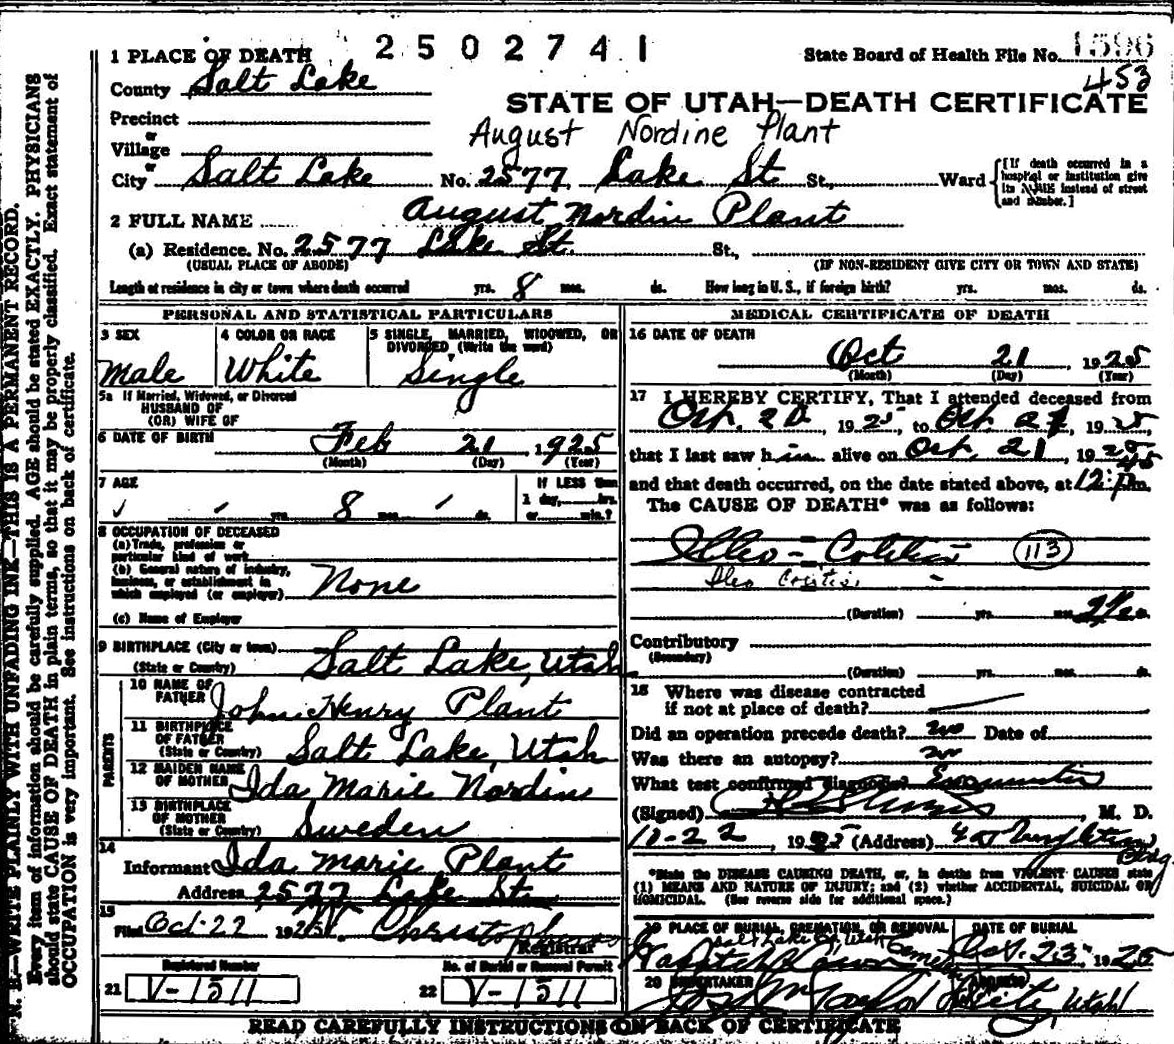 1 PLACE OF DEATH 2502741 State Board of Health File No. 1596
County Salt Lake 453
STATE OF UTAH—DEATH CERTIFICATE
Precinct
August Nordine Plant
or
Village
or
City Salt Lake No. 2577 Lake St St., Ward
[If death occurred in a hospital or institution give its NAME instead of street and number.]
2 FULL NAME August Nordin Plant
(a) Residence. No. 2577 Lake St. St.,
(USUAL PLACE OF ABODE) (IF NON-RESIDENT GIVE CITY OR TOWN AND STATE)
Length of residence in city or town where death occurred yrs. 8 mos. ds. How long in U. S., if foreign birth? yrs. mos. ds.
PERSONAL AND STATISTICAL PARTICULARS
3 SEX
Male
4 COLOR OR RACE
White
5 SINGLE, MARRIED, WIDOWED, OR
DIVORCED (Write the word)
Single
5a If Married, Widowed, or Divorced
HUSBAND OF
(OR) WIFE OF
6 DATE OF BIRTH Feb 21 1925
(Month) (Day) (Year)
7 AGE
yrs. 8 mos. ds.
IF LESS than
1 day, hrs.
or min.?
8 OCCUPATION OF DECEASED
(a) Trade, profession or
particular kind of work
(b) General nature of industry,
business, or establishment in
which employed (or employer)
None
(c) Name of Employer
9 BIRTHPLACE (City or town)
(State or Country) Salt Lake, Utah
PARENTS
10 NAME OF
FATHER John Henry Plant
11 BIRTHPLACE
OF FATHER
(State or Country) Salt Lake, Utah
12 MAIDEN NAME
OF MOTHER Ida Marie Nordin
13 BIRTHPLACE
OF MOTHER
(State or Country) Sweden
14
Informant Ida Marie Plant
Address 2577 Lake St.
15
Filed Oct-22 1925
Registrar
Registered Number
21 V-1511
No. of Burial or Removal Permit
22 V-1511
MEDICAL CERTIFICATE OF DEATH
16 DATE OF DEATH
Oct 21, 1925
(Month) (Day) (Year)
17 I HEREBY CERTIFY, That I attended deceased from
Oct. 20, 1925, to Oct. 21, 1925,
that I last saw him alive on Oct. 21, 1925
and that death occurred, on the date stated above, at 12:45 pm.
The CAUSE OF DEATH* was as follows:
Illeo-Colitis 113
Ileo Colitis
(Duration) yrs. mos. ds.
Contributory
(Secondary)
(Duration) yrs. mos. ds.
18 Where was disease contracted
if not at place of death?
Did an operation precede death? no Date of
Was there an autopsy? no
What test confirmed diagnosis?
(Signed) , M. D.
10-22 1925 (Address) Bldg.
*State the DISEASE CAUSING DEATH, or, in deaths from VIOLENT CAUSES state
(1) MEANS AND NATURE OF INJURY; and (2) whether ACCIDENTAL, SUICIDAL OR
HOMICIDAL. (See reverse side for additional space.)
19 PLACE OF BURIAL, CREMATION, OR REMOVAL
Salt Lake Co, Utah
Wasatch Lawn Cemetery
DATE OF BURIAL
Oct. 23 1925
20 UNDERTAKER
Taylor
ADDRESS
City, Utah
READ CAREFULLY INSTRUCTIONS ON BACK OF CERTIFICATE
N. B.—WRITE PLAINLY WITH UNFADING INK—THIS IS A PERMANENT RECORD.
Every item of information should be carefully supplied. AGE should be stated EXACTLY. PHYSICIANS
should state CAUSE OF DEATH in plain terms, so that it may be properly classified. Exact statement of
OCCUPATION is very important. See instructions on back of certificate.